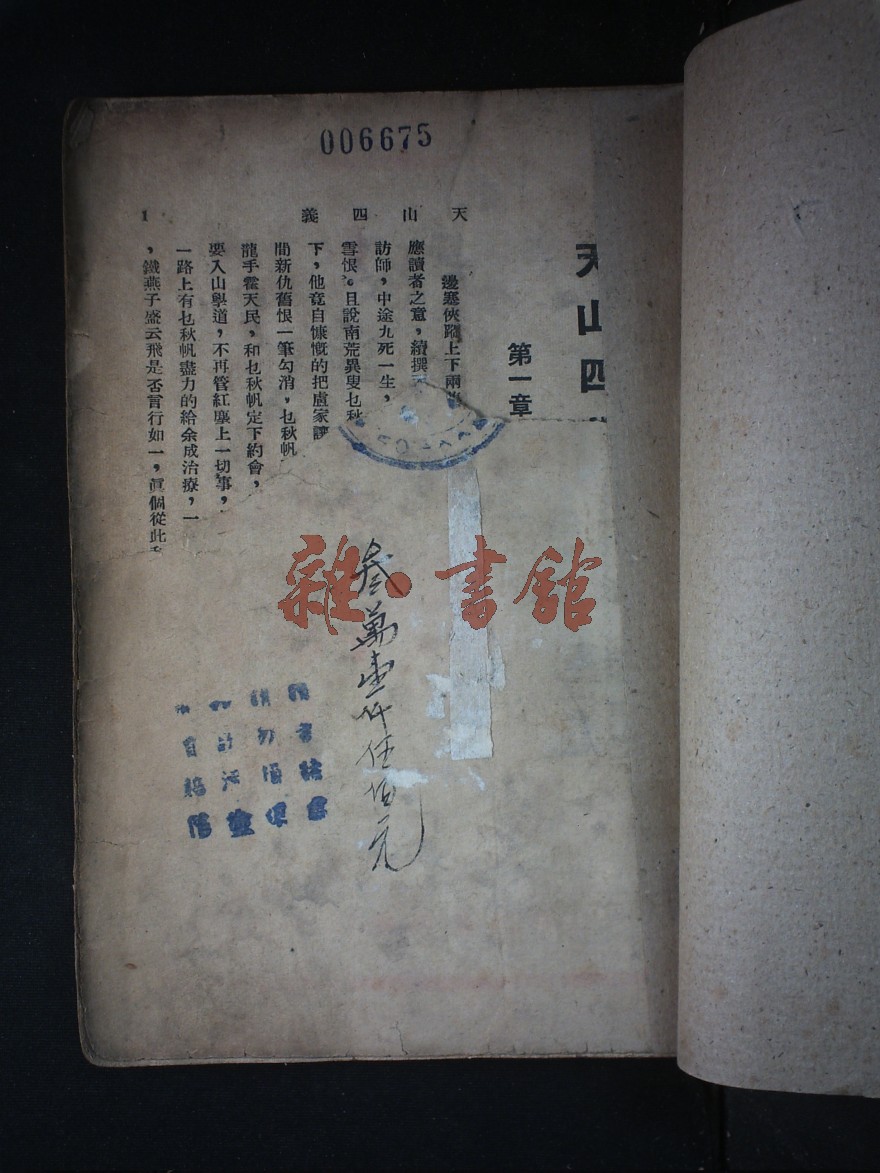 006675
天山四
第一章
天山四義
邊塞俠蹤上下兩
應讀者之意，續撰
訪師，中途九死一生，
雪恨。且說南荒異叟乜秋
下，他竟自慷慨的把盧家
間新仇舊恨一筆勾消，乜秋帆
龍手霍天民，和乜秋帆定下約會，
要入山學道，不再管紅塵上一切事，
一路上有乜秋帆盡力的給余成治療，一
，鐵燕子盛云飛是否言行如一，眞個從此
1
叁萬壹仟伍佰元
雜·書館